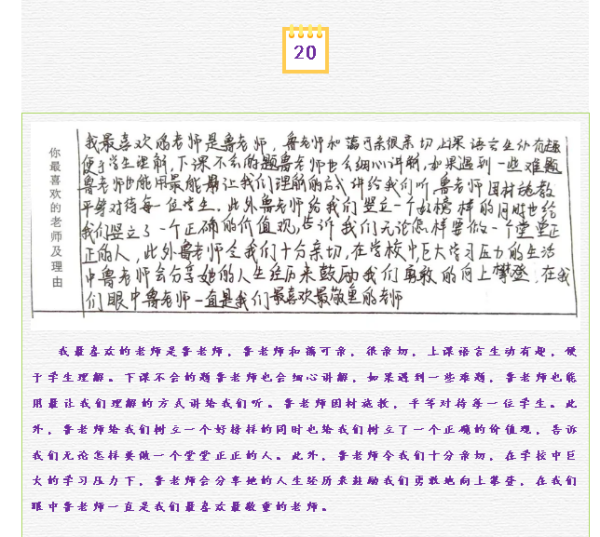 20
你最喜欢的老师及理由
我最喜欢的老师是鲁老师,鲁老师和蔼可亲很亲切上课语言生动有趣
便于学生理解,下课不会的题鲁老师也会细心讲解,如果遇到一些难题
鲁老师也能用最能最让我们理解的方式讲给我们听 鲁老师因材施教
平等对待每一位学生。此外鲁老师给我们竖立一个好榜样的同时也给
我们竖立了一个正确的价值观,告诉我们无论怎样要做一个堂堂正
正的人,此外鲁老师令我们十分亲切,在学校中巨大学习压力的生活
中鲁老师会分享她的人生经历来鼓励我们勇敢的向上攀登,在我
们眼中鲁老师一直是我们最喜欢最敬重的老师
我最喜欢的老师是鲁老师,鲁老师和蔼可亲,很亲切,上课语言生动有趣,便
于学生理解。下课不会的题鲁老师也会细心讲解,如果遇到一些难题,鲁老师也能
用最让我们理解的方式讲给我们听。鲁老师因材施教,平等对待每一位学生。此
外,鲁老师给我们树立一个好榜样的同时也给我们树立了一个正确的价值观,告诉
我们无论怎样要做一个堂堂正正的人。此外,鲁老师令我们十分亲切,在学校中巨
大的学习压力下,鲁老师会分享她的人生经历来鼓励我们勇敢地向上攀登,在我们
眼中鲁老师一直是我们最喜欢最敬重的老师。